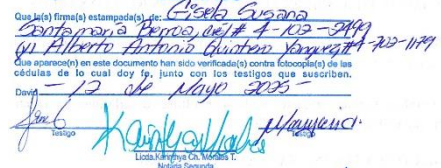 Que la(s) firma(s) estampada(s) de: Gisela Susana
Santamaría Berroa, céd# 4-102-2499
y Alberto Antonio Quintero Yanguez #4-702-1179
Que aparece(n) en este documento han sido verificada(s) contra fotocopia(s) de las
cédulas de lo cual doy fe, junto con los testigos que suscriben.
David 12 de Mayo 2025
Testigo Testigo
Licda. Ch. Morales T.
Notaria Segunda